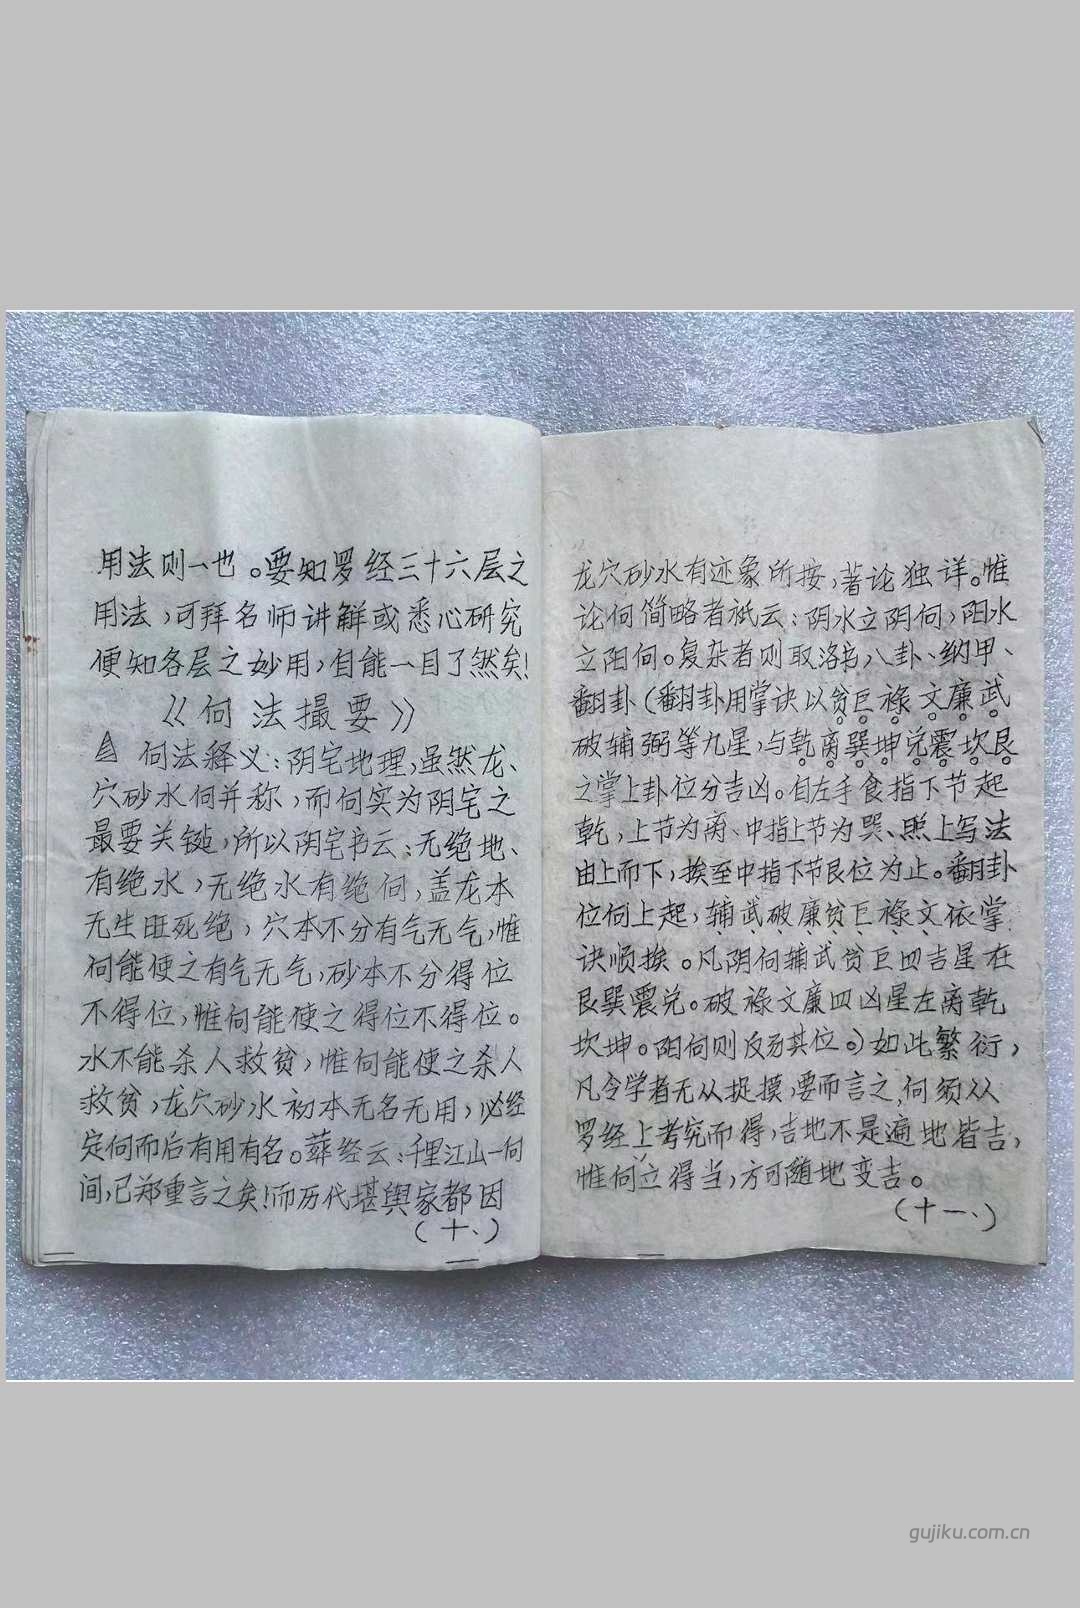 用法则一也。要知罗经三十六层之
用法，可拜名师讲解或悉心研究
便知各层之妙用，自能一目了然矣！
《向法撮要》
向法释义：阴宅地理，虽然龙、
穴砂水向并称，而向实为阴宅之
最要关键，所以阴宅书云：无绝地、
有绝水，无绝水有绝向，盖龙本
无生旺死绝，穴本不分有气无气，惟
向能使之有气无气，砂本不分得位
不得位，惟向能使之得位不得位。
水不能杀人救贫，惟向能使之杀人
救贫，龙穴砂水初本无名无用，必经
定向而后有用有名。葬经云：千里江山一向
间，已郑重言之矣！而历代堪舆家都因
（十、）
龙穴砂水有迹象所按，著论独详。惟
论向简略者祇云：阴水立阴向，阳水
立阳向。复杂者则取洛书，八卦、纳甲、
翻卦（翻卦用掌诀以贫巨祿文廉武
破辅弼等九星，与乾离巽坤兑震坎艮
之掌上卦位分吉凶。自左手食指下节起
乾，上节为离、中指上节为巽、照上写法
由上而下，挨至中指下节艮位为止。翻卦
位向上起，辅武破廉贫巨祿文依掌
诀顺挨。凡阴向辅武贫巨四吉星在
艮巽震兑。破祿文廉四凶星在离乾
坎坤。阳向则反易其位。）如此繁衍，
凡令学者无从捉摸，要而言之，向须从
罗经上考究而得，吉地不是遍地皆吉，
惟向立得当，方可随地变吉。
（十一、）
gujiku.com.cn